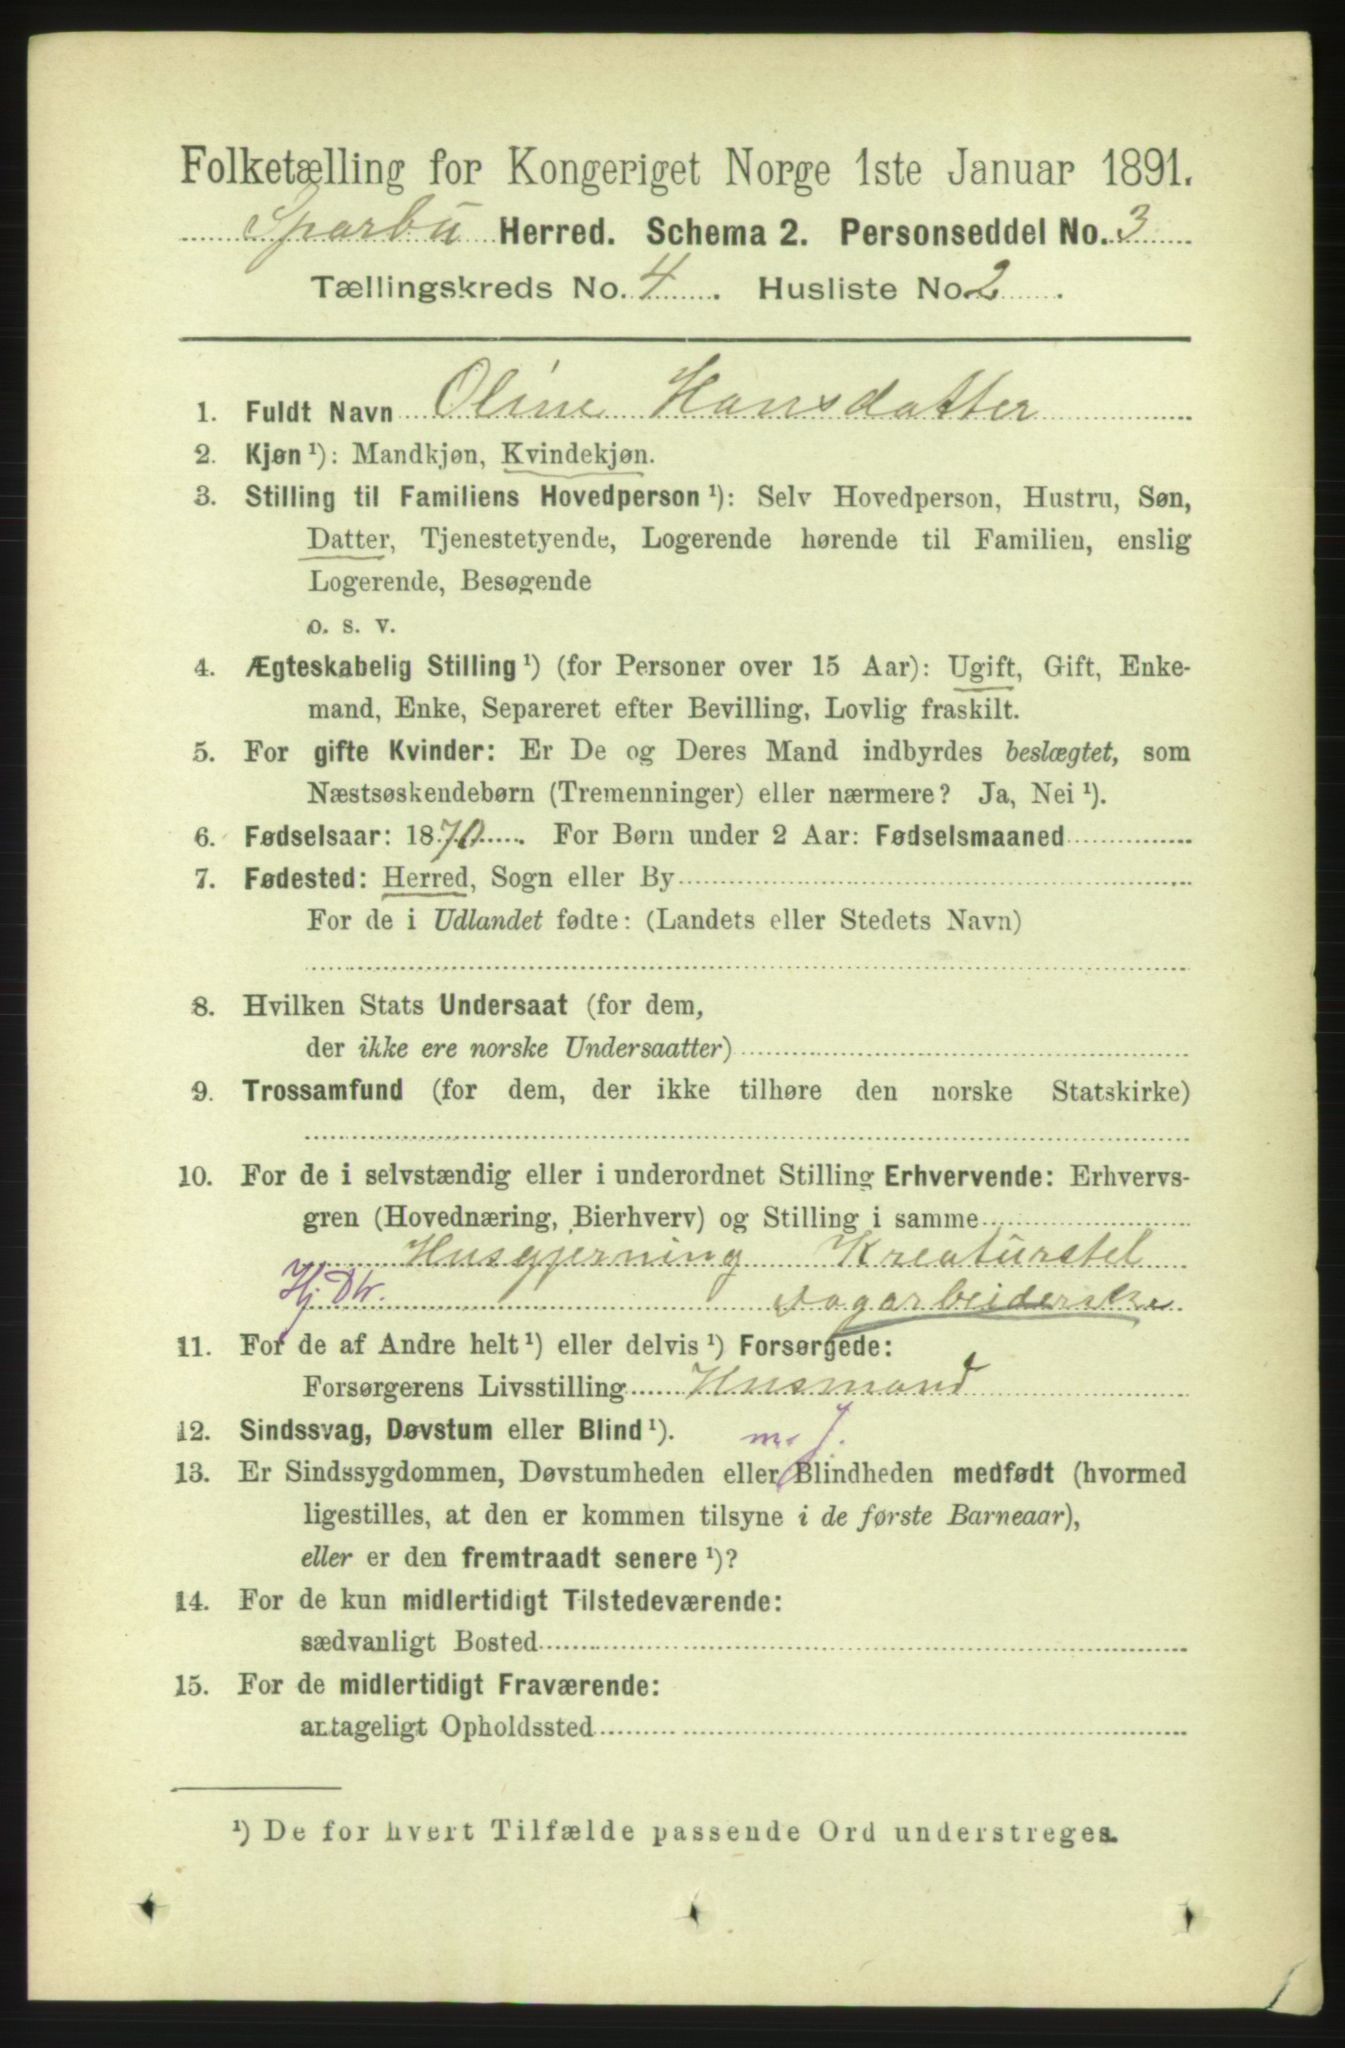 Folketælling for Kongeriget Norge 1ste Januar 1891.
Sparbu Herred. Schema 2. Personseddel No. 3
Tællingskreds No. 4. Husliste No 2.
1. Fuldt Navn Oline Hansdatter
2. Kjøn ¹): Mandkjøn, Kvindekjøn.
3. Stilling til Familiens Hovedperson ¹): Selv Hovedperson, Hustru, Søn,
Datter, Tjenestetyende, Logerende hørende til Familien, enslig
Logerende, Besøgende
o. s. v.
4. Ægteskabelig Stilling ¹) (for Personer over 15 Aar): Ugift, Gift, Enke-
mand, Enke, Separeret efter Bevilling, Lovlig fraskilt.
5. For gifte Kvinder: Er De og Deres Mand indbyrdes beslægtet, som
Næstsøskendebørn (Tremenninger) eller nærmere? Ja, Nei ¹).
6. Fødselsaar: 1870. For Børn under 2 Aar: Fødselsmaaned
7. Fødested: Herred, Sogn eller By
For de i Udlandet fødte: (Landets eller Stedets Navn)
8. Hvilken Stats Undersaat (for dem,
der ikke ere norske Undersaatter)
9. Trossamfund (for dem, der ikke tilhøre den norske Statskirke)
10. For de i selvstændig eller i underordnet Stilling Erhvervende: Erhvervs-
gren (Hovednæring, Bierhverv) og Stilling i samme
Husgjerning Kreaturstel
Hj. Dtr. Dagarbeiderske
11. For de af Andre helt ¹) eller delvis ¹) Forsørgede:
Forsørgerens Livsstilling Husmand
12. Sindssvag, Døvstum eller Blind ¹). m. J.
13. Er Sindssygdommen, Døvstumheden eller Blindheden medfødt (hvormed
ligestilles, at den er kommen tilsyne i de første Barneaar),
eller er den fremtraadt senere ¹)?
14. For de kun midlertidigt Tilstedeværende:
sædvanligt Bosted
15. For de midlertidigt Fraværende:
antageligt Opholdssted
¹) De for hvert Tilfælde passende Ord understreges.